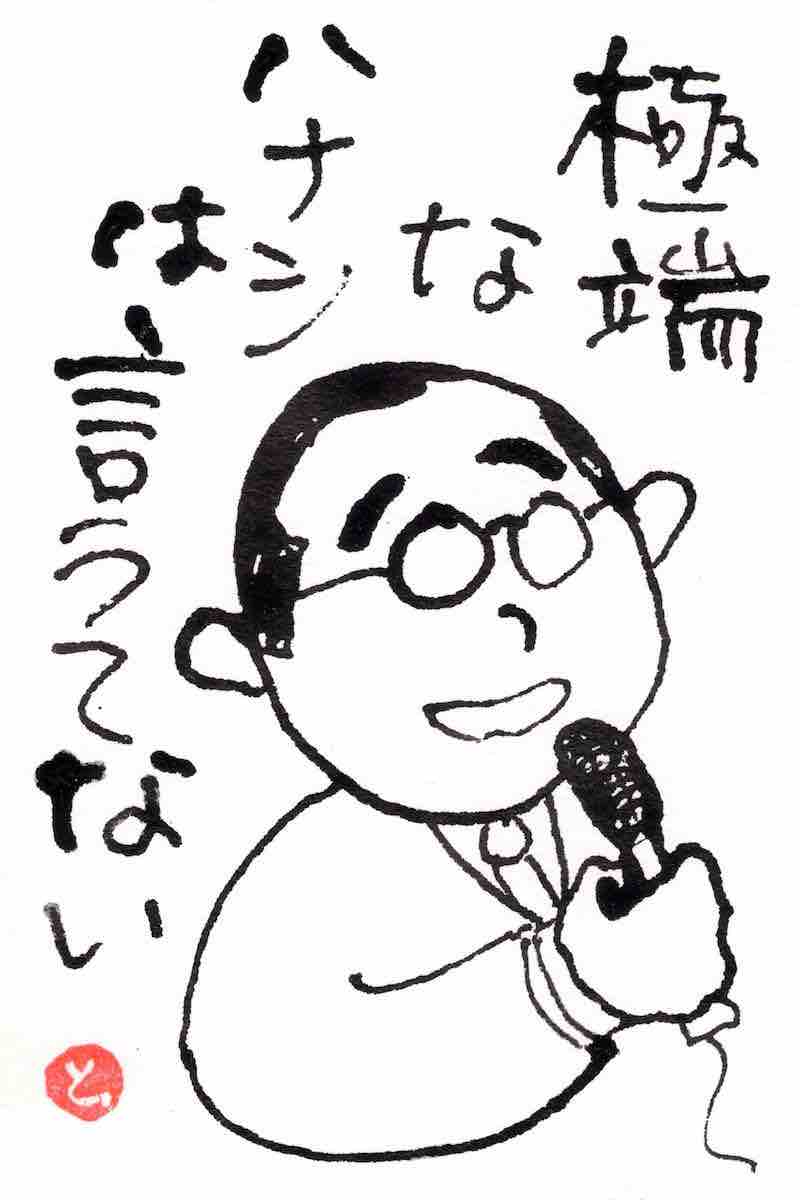 極端
な
ハナシ
は
言うてない
と